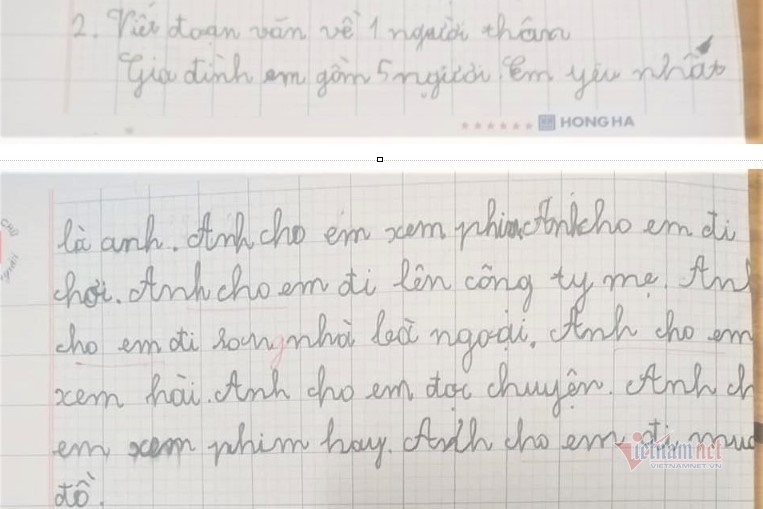 2. Viết đoạn văn về 1 người thân
Gia đình em gồm 5 người. Em yêu nhất
HONG HA
là anh. Anh cho em xem phim Anh cho em đi
chơi. Anh cho em đi lên công ty mẹ. Anh
cho em đi song nhà bà ngoại. Anh cho em
xem hài. Anh cho em đọc chuyện. Anh ch
em xem phim hay. Anh cho em đi mua
đồ.
Vietnamnet
VIETNAMNET.VN